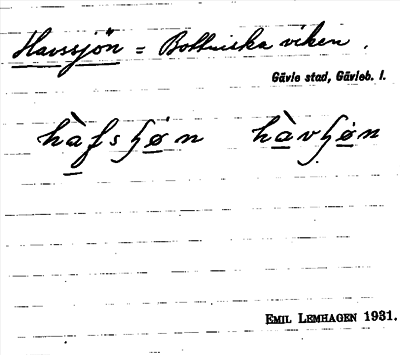 Havssjön = Bottniska viken.
Gävle stad, Gävleb. l.
hàfsɧøn hàvɧøn
EMIL LEMHAGEN 1931.